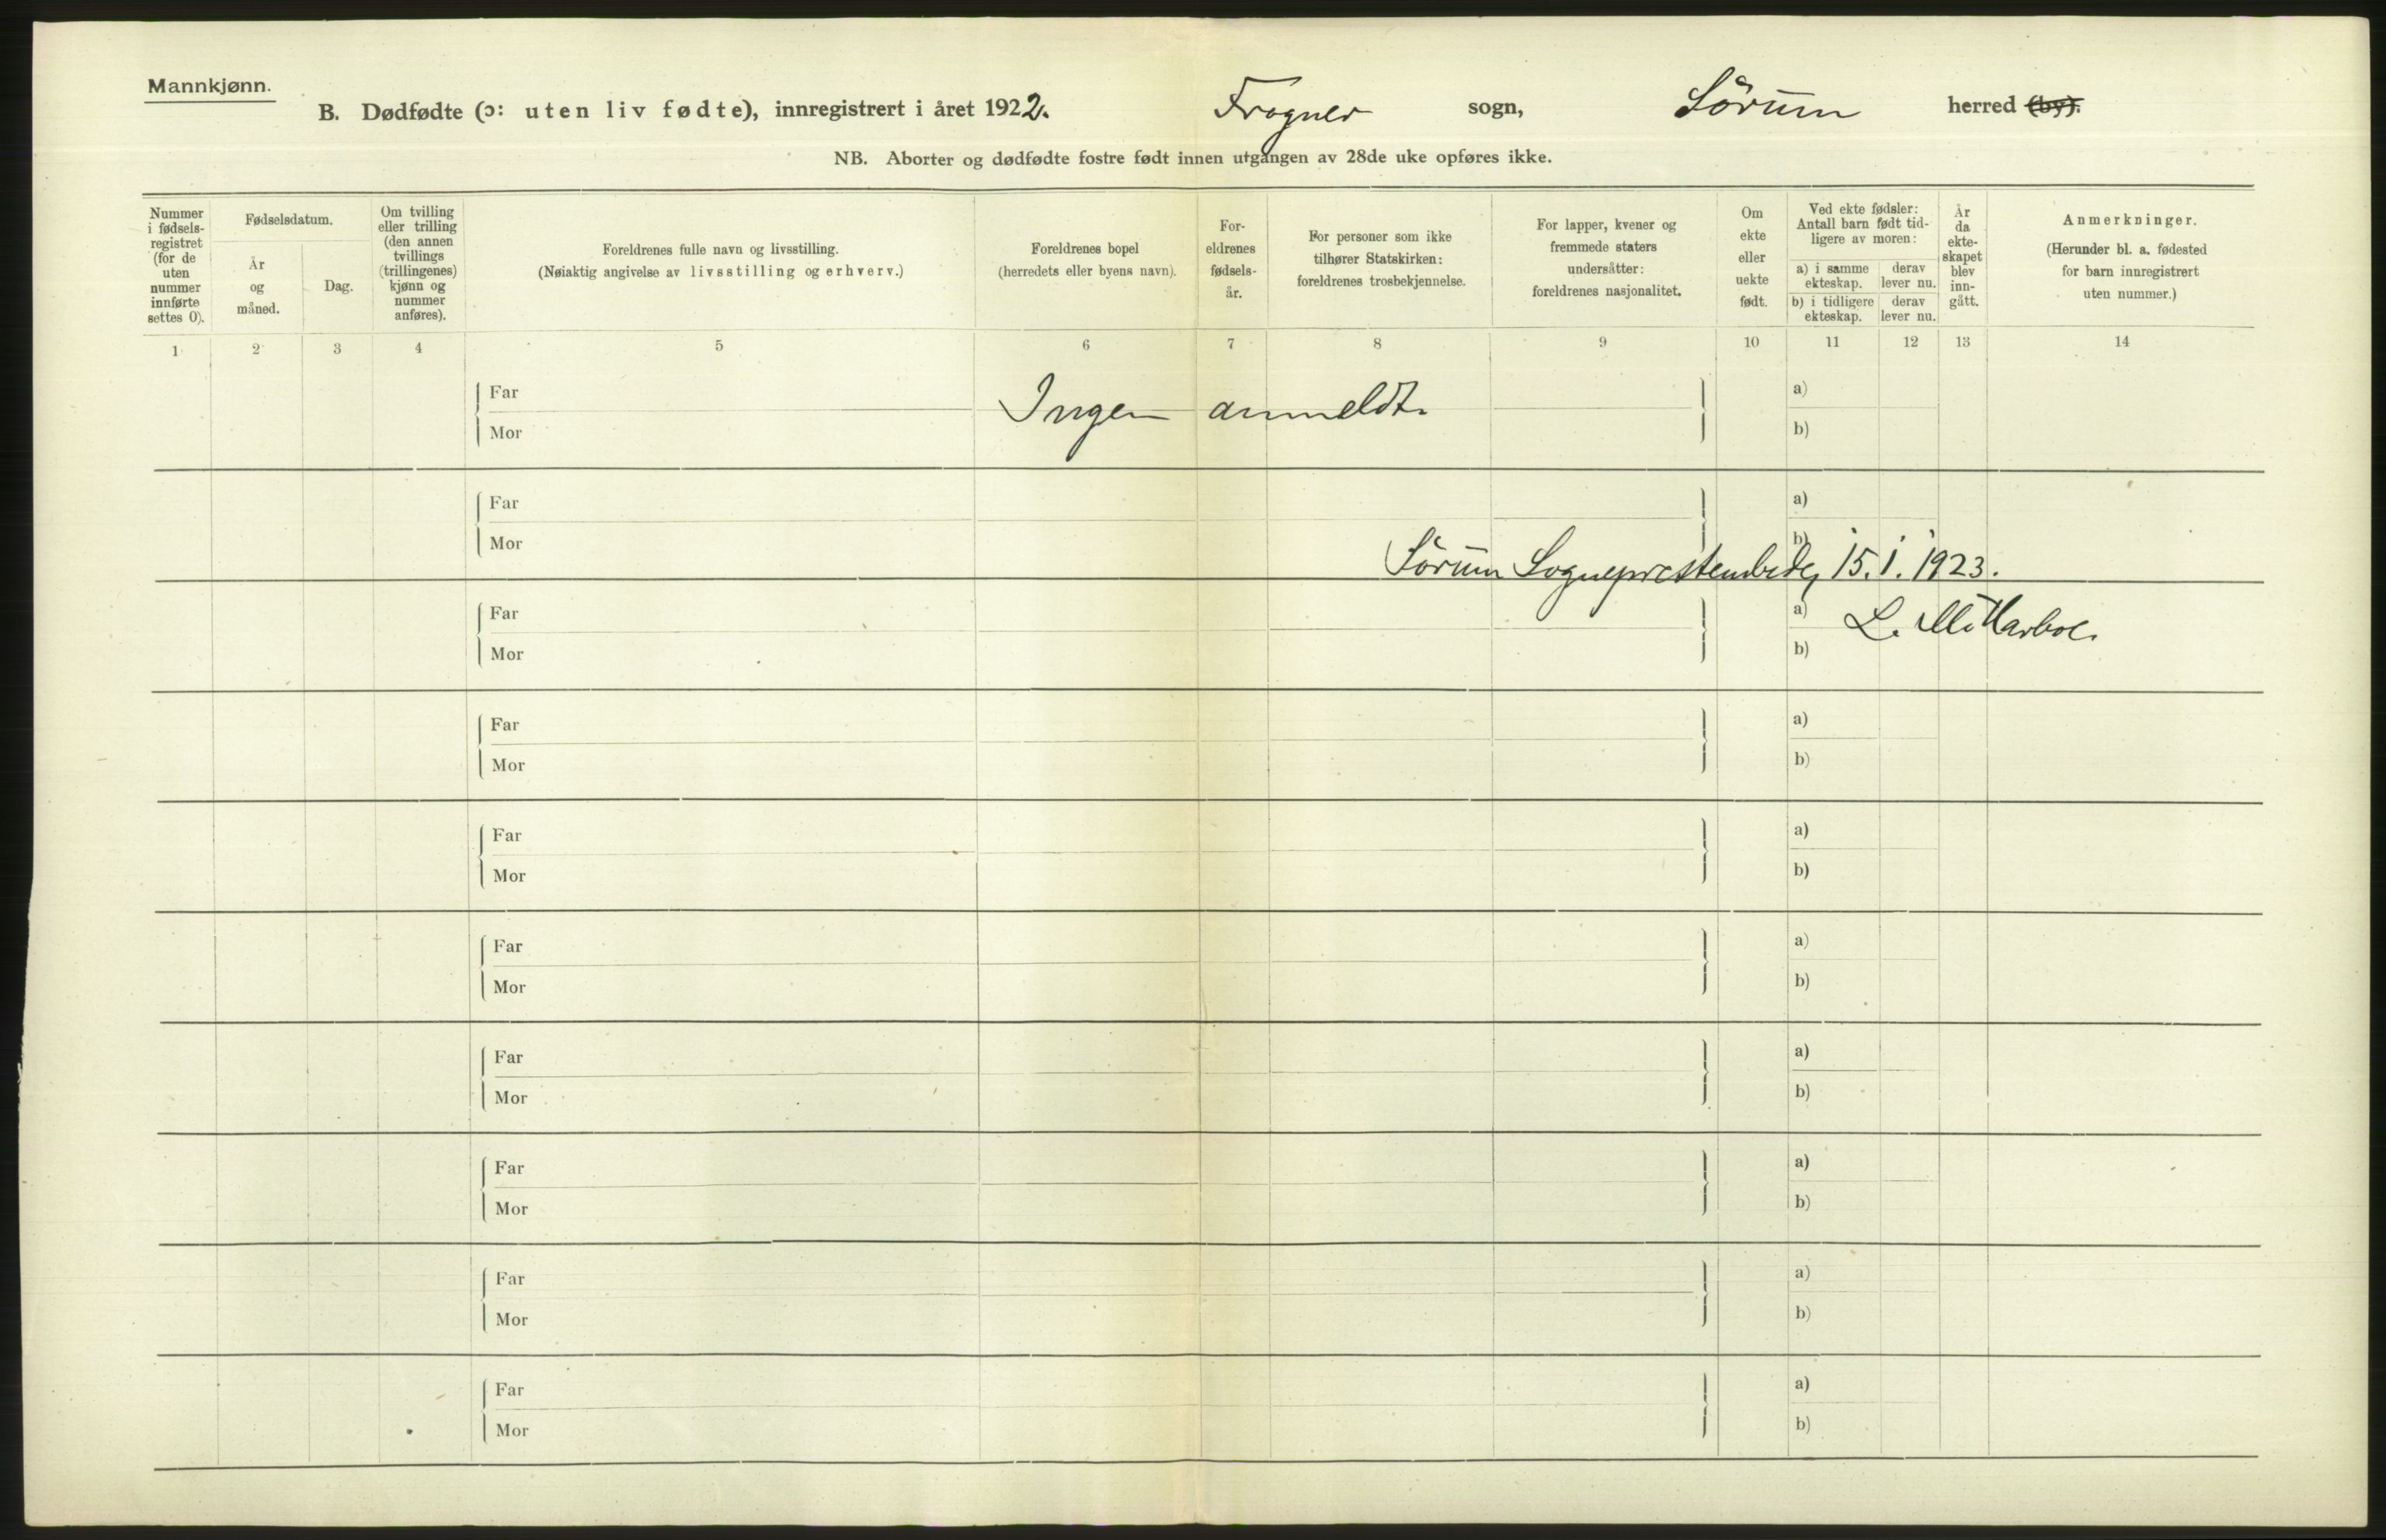 Mannkjønn.
B. Dødfødte (ɔ: uten liv fødte), innregistrert i året 1922. Frogner sogn, Sörum herred (by).
NB. Aborter og dødfødte fostre født innen utgangen av 28de uke opføres ikke.
Nummer
i fødsels-
registret
(for de
uten
nummer
innførte
settes 0).
Fødselsdatum.
År
og
måned.
Dag.
Om tvilling
eller trilling
(den annen
tvillings
(trillingenes)
kjønn og
nummer
anføres).
Foreldrenes fulle navn og livsstilling.
(Nøiaktig angivelse av livsstilling og erhverv.)
Foreldrenes bopel
(herredets eller byens navn).
For-
eldrenes
fødsels-
år.
For personer som ikke
tilhører Statskirken:
foreldrenes trosbekjennelse.
For lapper, kvener og
fremmede staters
undersåtter:
foreldrenes nasjonalitet.
Om
ekte
eller
uekte
født.
Ved ekte fødsler:
Antall barn født tid-
ligere av moren:
a) i samme
ekteskap.
derav
lever nu.
b) i tidligere
ekteskap.
derav
lever nu.
År
da
ekte-
skapet
blev
inn-
gått.
Anmerkninger.
(Herunder bl. a. fødested
for barn innregistrert
uten nummer.)
1 2 3 4 5 6 7 8 9 10 11 12 13 14
Far a)
Ingen anmeldt.
Mor b)
Far a)
Mor b)
Sörum Sogneprestembede, 15.1.1923.
Far a)
L. M. Harboe.
Mor b)
Far a)
Mor b)
Far a)
Mor b)
Far a)
Mor b)
Far a)
Mor b)
Far a)
Mor b)
Far a)
Mor b)
Far a)
Mor b)